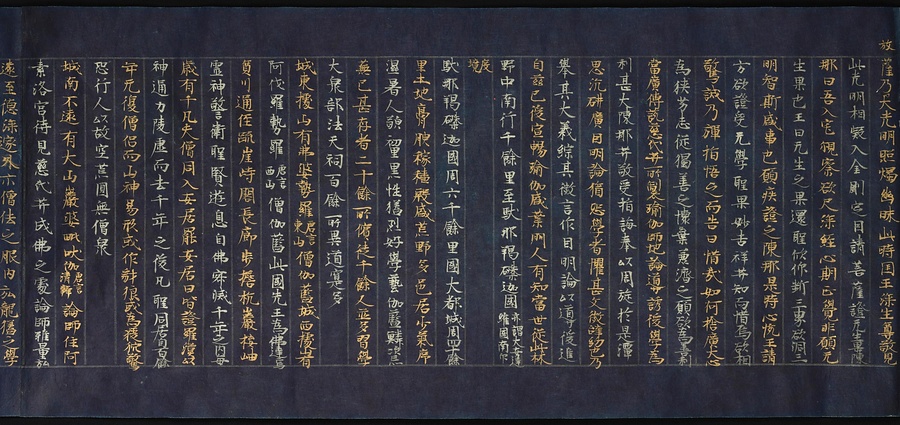 放
薩乃大光明照燭幽昧此時国王深生尊敬見
此光明相疑入金剛定自請菩薩證无生果陳
那曰吾入定觀察欲尺深經心期正覺非願无
生果也王曰无生之果還聖攸仰断三界欲洞三
明智斯盛事也願疾證之陳那是時心悦王請
方欲證受无學聖果妙吉祥𦬇知而惜焉欲相
驚誡乃彈指悟之而告曰惜哉如何捨廣大心
為狭劣志従獨善之懐棄兼濟之願欲為善利
當廣傳說慈氏𦬇所製瑜伽師地論導誘後學為
利甚大陳那𦬇敬受指誨奉以周旋於是覃
思沉研廣因明論猶恐學者懼其文微辞約也乃
舉其大義綜其微言作因明論以導後進
自茲已後宣暢瑜伽盛業門人有知當世従此林
野中南行千餘里至馱那羯磔迦国亦謂大安達邏国南印
度境
馱那羯磔迦國周六千餘里國大都城周四十餘
里土地膏腴稼穡殷盛荒野多邑居少氣序
温暑人貌黧黑性猛烈好學藝伽藍鱗次荒
蕪已甚存者二十餘所僧徒千餘人並多習學
大衆部法天祠百餘所異道寔多
城東據山有弗婆勢羅唐言東山僧伽藍城西據山有
阿伐羅勢羅唐言西山僧伽藍此國先王為佛建焉
奠川通徑疏崖峙閣長廊步簷枕巖接岫
霊神警衛聖賢遊息自佛寂滅千年之内毎
歳有千凡夫僧同入安居罷安居日皆證羅漢以
神通力陵虚而去千年之後凡聖同居自百餘
年无復僧侶而山神易形或作豺狼或為猨狖驚
恐行人以故空荒闃無僧衆
城南不遠有大山巖婆毗吠伽唐言清辯論師住阿
素洛宮待見慈氏𦬇成佛之處論師雅量弘
遠至德深邃外示僧佉之服内弘龍猛之學